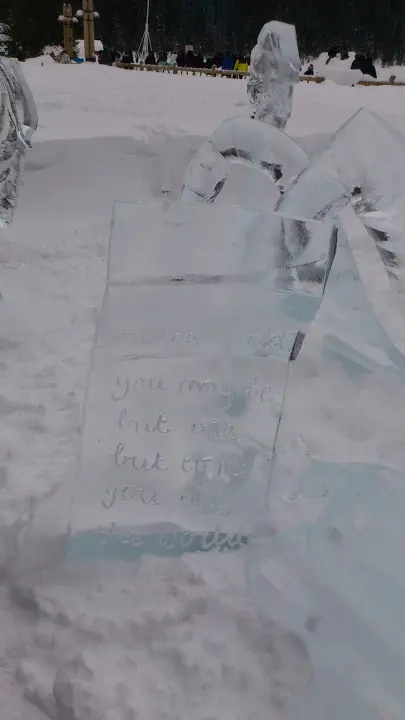 you may be
but one
but to me
you are
the world